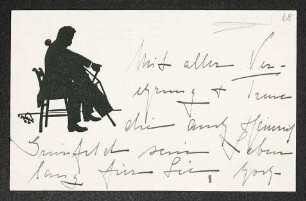 68
Mit aller Ver-
ehrung + Treue
die auch Heinrich
Grünfeld sein Leben
lang für Sie